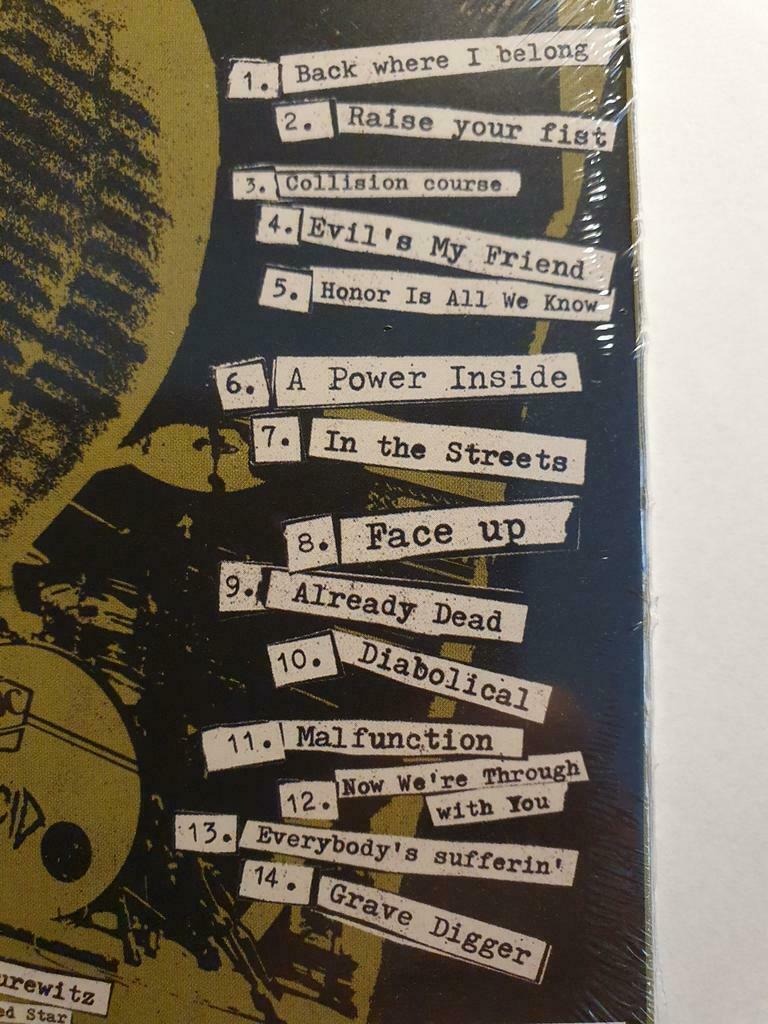 1. Back where I belong
2. Raise your fist
3. Collision course
4. Evil's My Friend
5. Honor Is All We Know
6. A Power Inside
7. In the Streets
8. Face up
9. Already Dead
10. Diabolical
11. Malfunction
12. Now We're Through
with You
13. Everybody's sufferin'
14. Grave Digger
CID
urewitz
ed Star